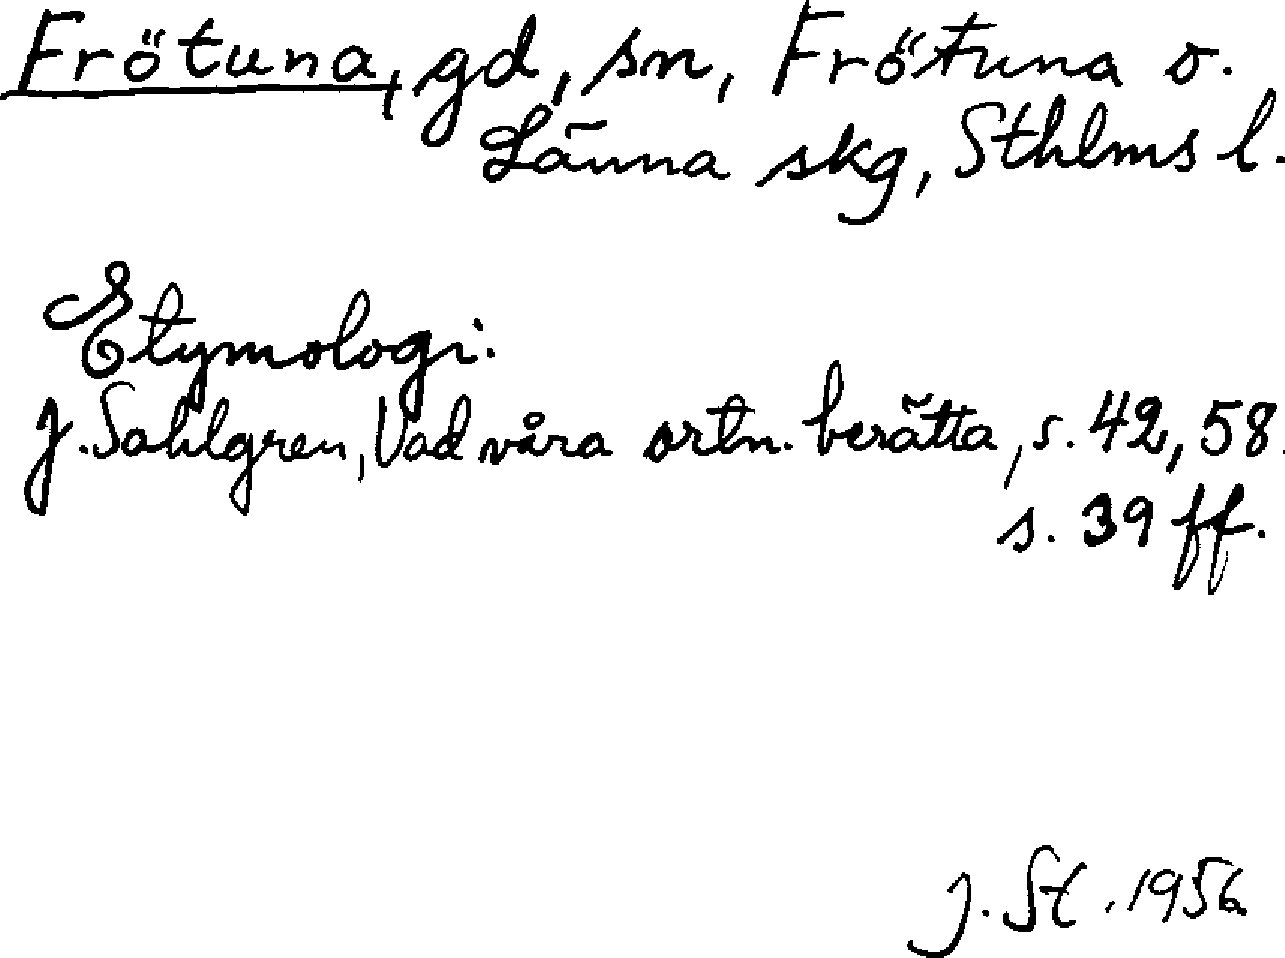 Frötuna, gd, sn, Frötuna o.
Länna skg, Sthlms l.
Etymologi:
J. Sahlgren, Vad våra ortn. berätta, s. 42, 58.
s. 39 ff.
J. St. 1956